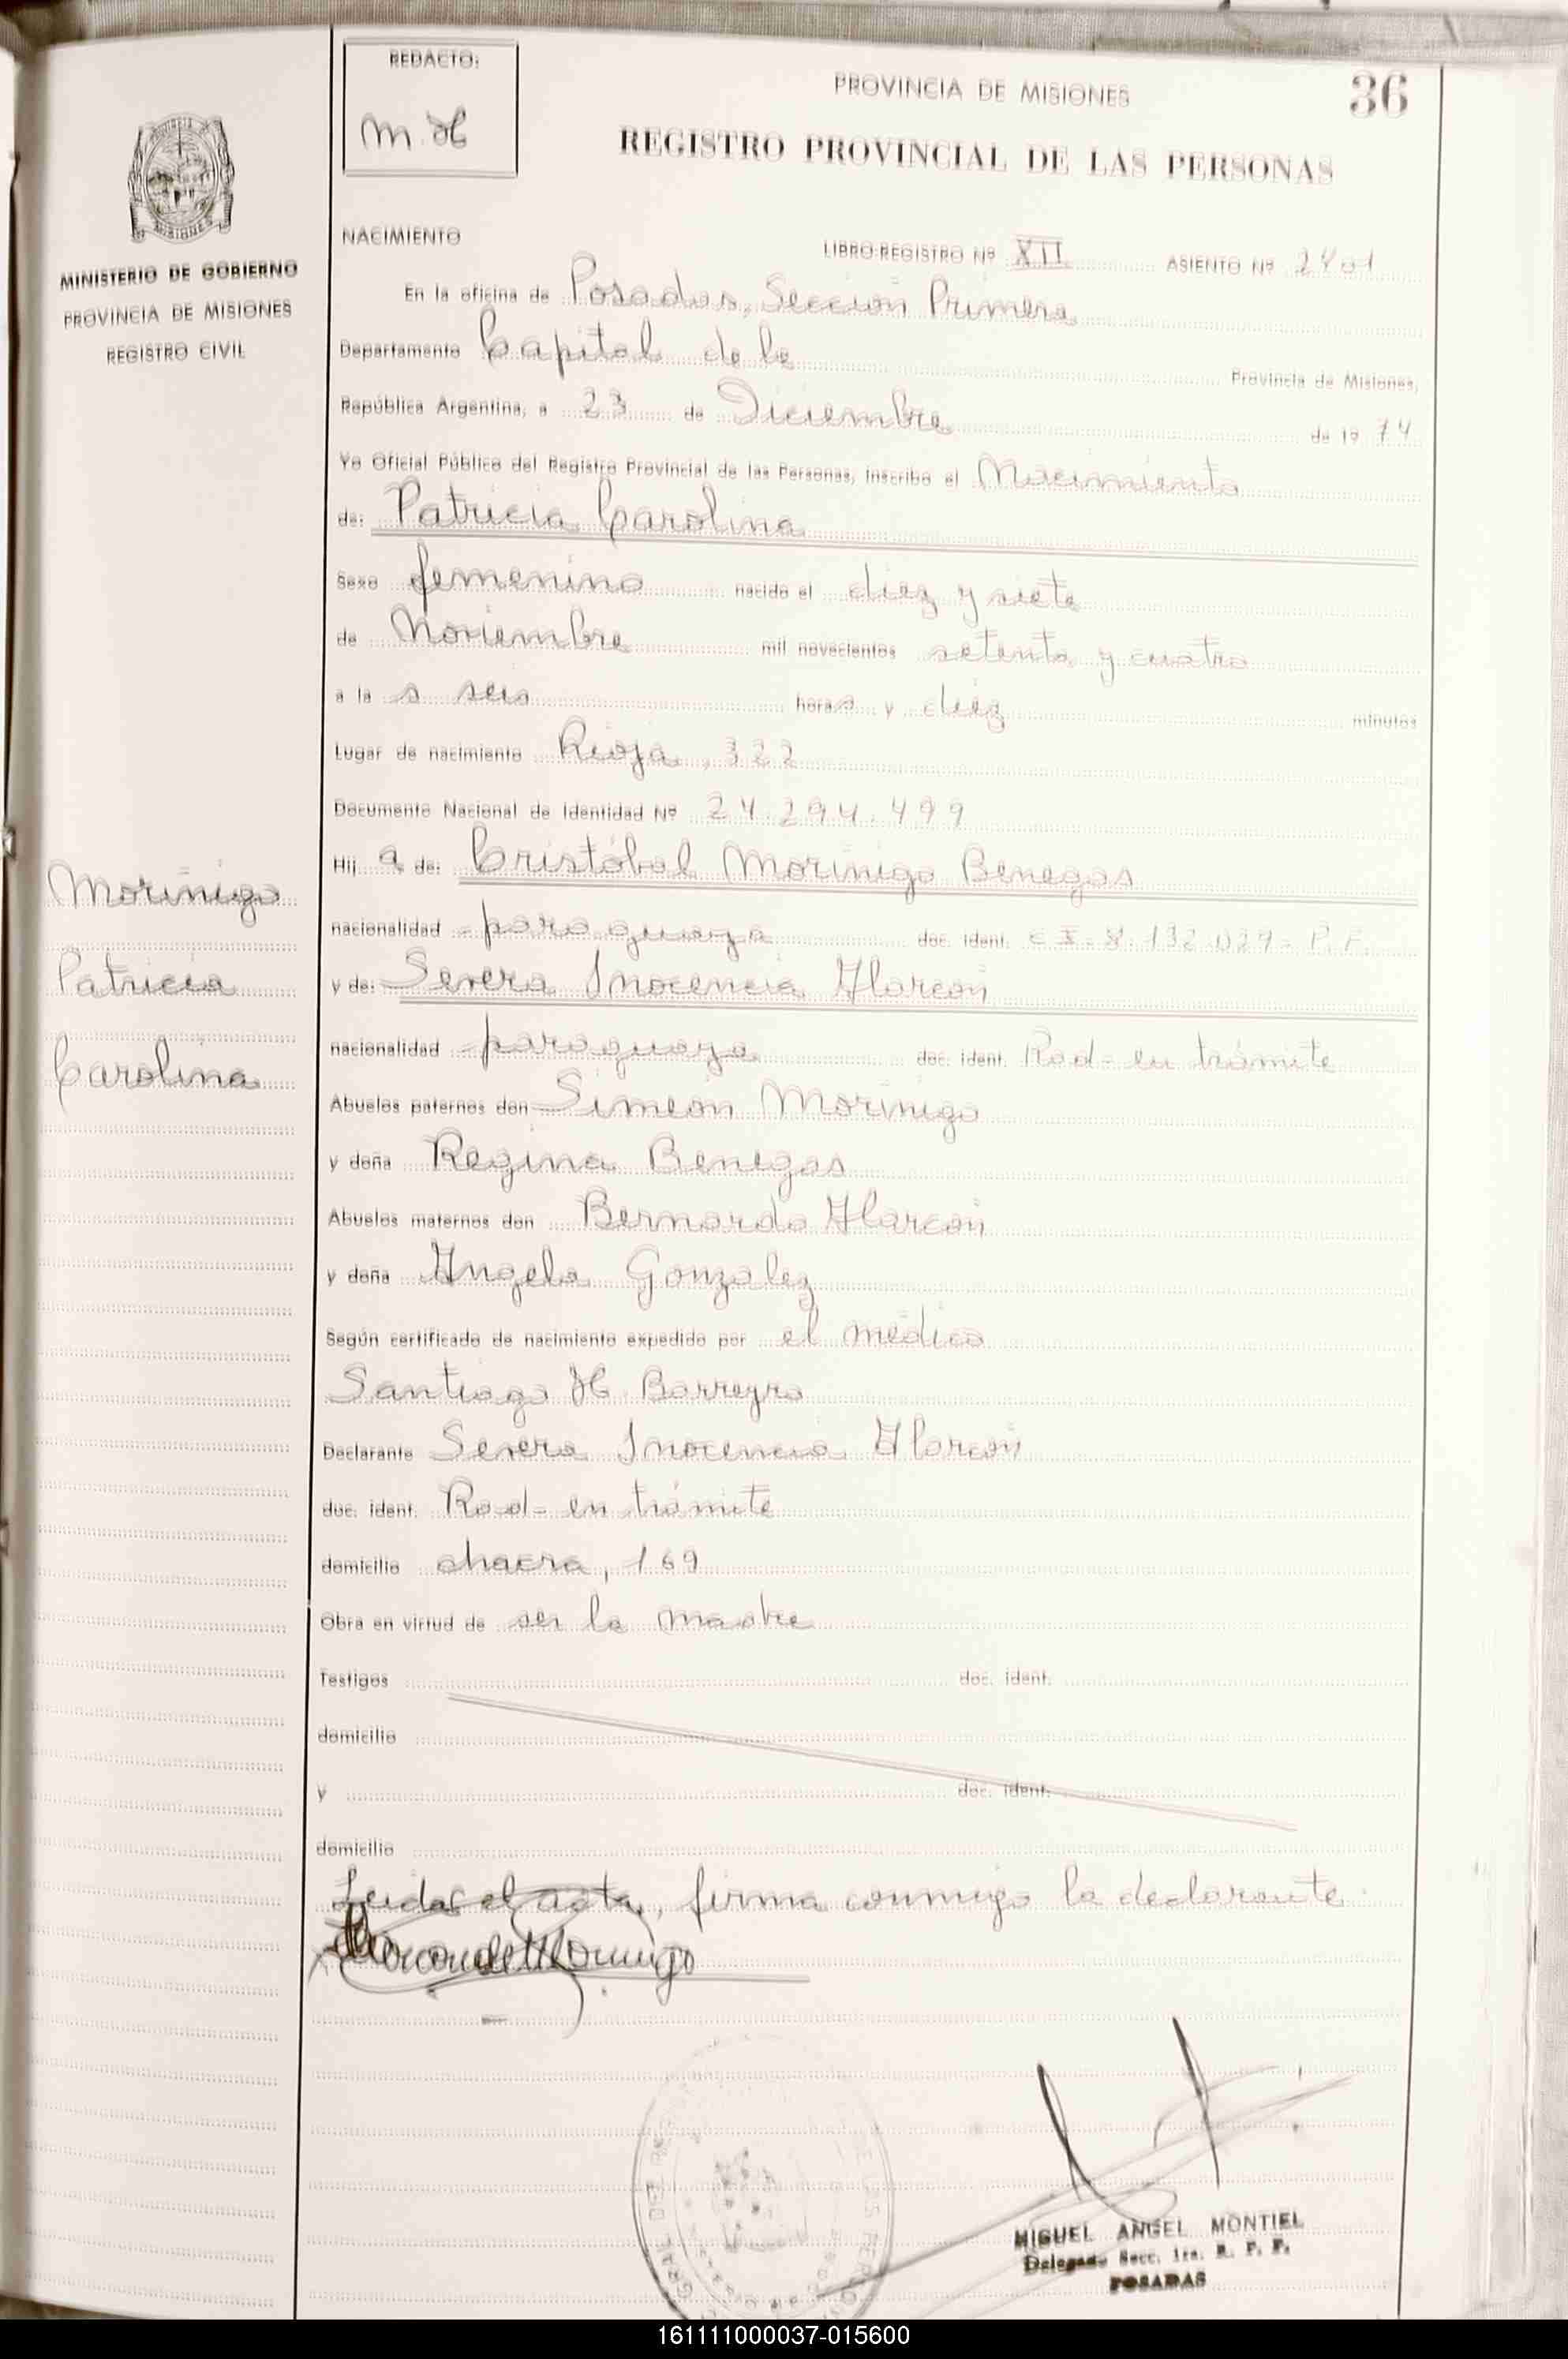 REDACTO:
M. H
PROVINCIA DE MISIONES
36
REGISTRO PROVINCIAL DE LAS PERSONAS
MISIONES
MINISTERIO DE GOBIERNO
PROVINCIA DE MISIONES
REGISTRO CIVIL
NACIMIENTO
LIBRO-REGISTRO Nº XII ASIENTO Nº 2401
En la oficina de Posadas, Sección Primera
Departamento Capital de la Provincia de Misiones,
República Argentina, a 23 de Diciembre de 19 74
Yo Oficial Público del Registro Provincial de las Personas, inscribo el Nacimiento
de: Patricia Carolina
Sexo femenino nacido el diez y siete
de Noviembre mil novecientos setenta y cuatro
a la s seis horas y diez minutos
Lugar de nacimiento Rioja, 322
Documento Nacional de Identidad Nº 24.294.499
Hij a de: Cristóbal Morinigo Benegas
nacionalidad paraguaya doc. ident. C I - 8.132.029 - P.F.
y de: Severa Inocencia Alarcón
nacionalidad paraguaya doc. ident. Rad - en trámite
Abuelos paternos don Simeón Morinigo
y doña Regina Benegas
Abuelos maternos don Bernardo Alarcón
y doña Angela Gonzalez
Según certificado de nacimiento expedido por el médico
Santiago H. Barreyro
Declarante Severa Inocencia Alarcón
doc. ident. Rad - en trámite
domicilio chacra, 169
Obra en virtud de ser la madre
Testigos doc. ident.
domicilio
y doc. ident.
domicilio
Leida el acta, firma conmigo la declarante.
Morinigo
Patricia
Carolina
MIGUEL ANGEL MONTIEL
Delegado Secc. 1ra. R. P. P.
POSADAS
161111000037-015600